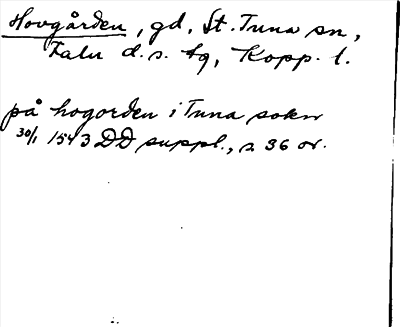 Hovgården, gd, St. Tuna sn,
Falu d.s. tg, Kopp. l.
på hogorden i Tuna sokn
30/1 1543 DD suppl., s 36 or.